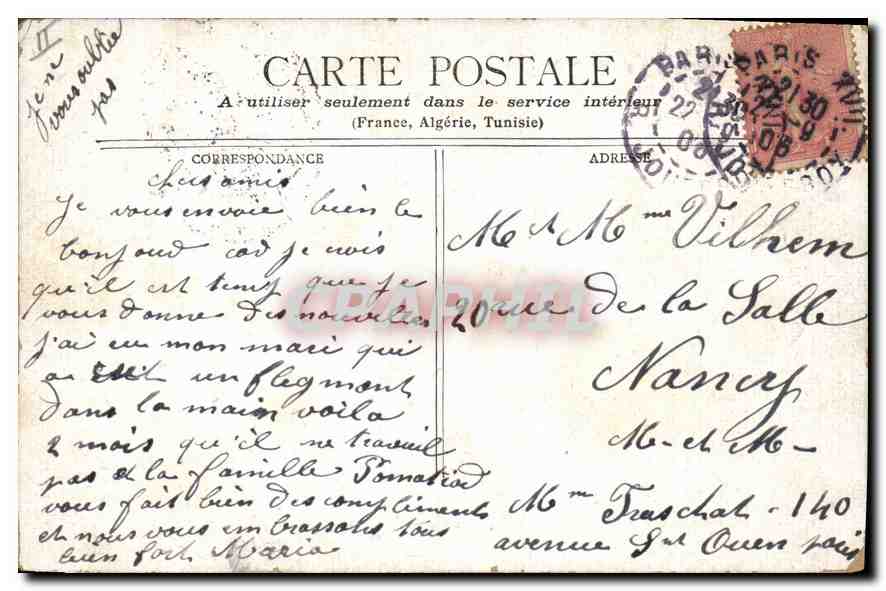 II
je ne
vous oublie
pas
CARTE POSTALE
A utiliser seulement dans le service intérieur
(France, Algérie, Tunisie)
PARIS XVII
21 30
22
06
PARIS XVII
21 30
06
CORRESPONDANCE
ADRESSE
chers amis
Je vous envoie bien le
bonjour car je crois
qu'il est temp que je
vous donne des nouvelles
j'ai eu mon mari qui
a un flegmont
dans la main voila
2 mois qu'il ne travail
pas et la famille Pomatiod
vous fait bien des compliments
et nous vous embrassons tous
bien fort Maria
M et Mme Vilhem
20 rue de la Salle
Nancy
M- et M-
Mme Traschat - 140
avenue St Ouen paris
CPAPHIL